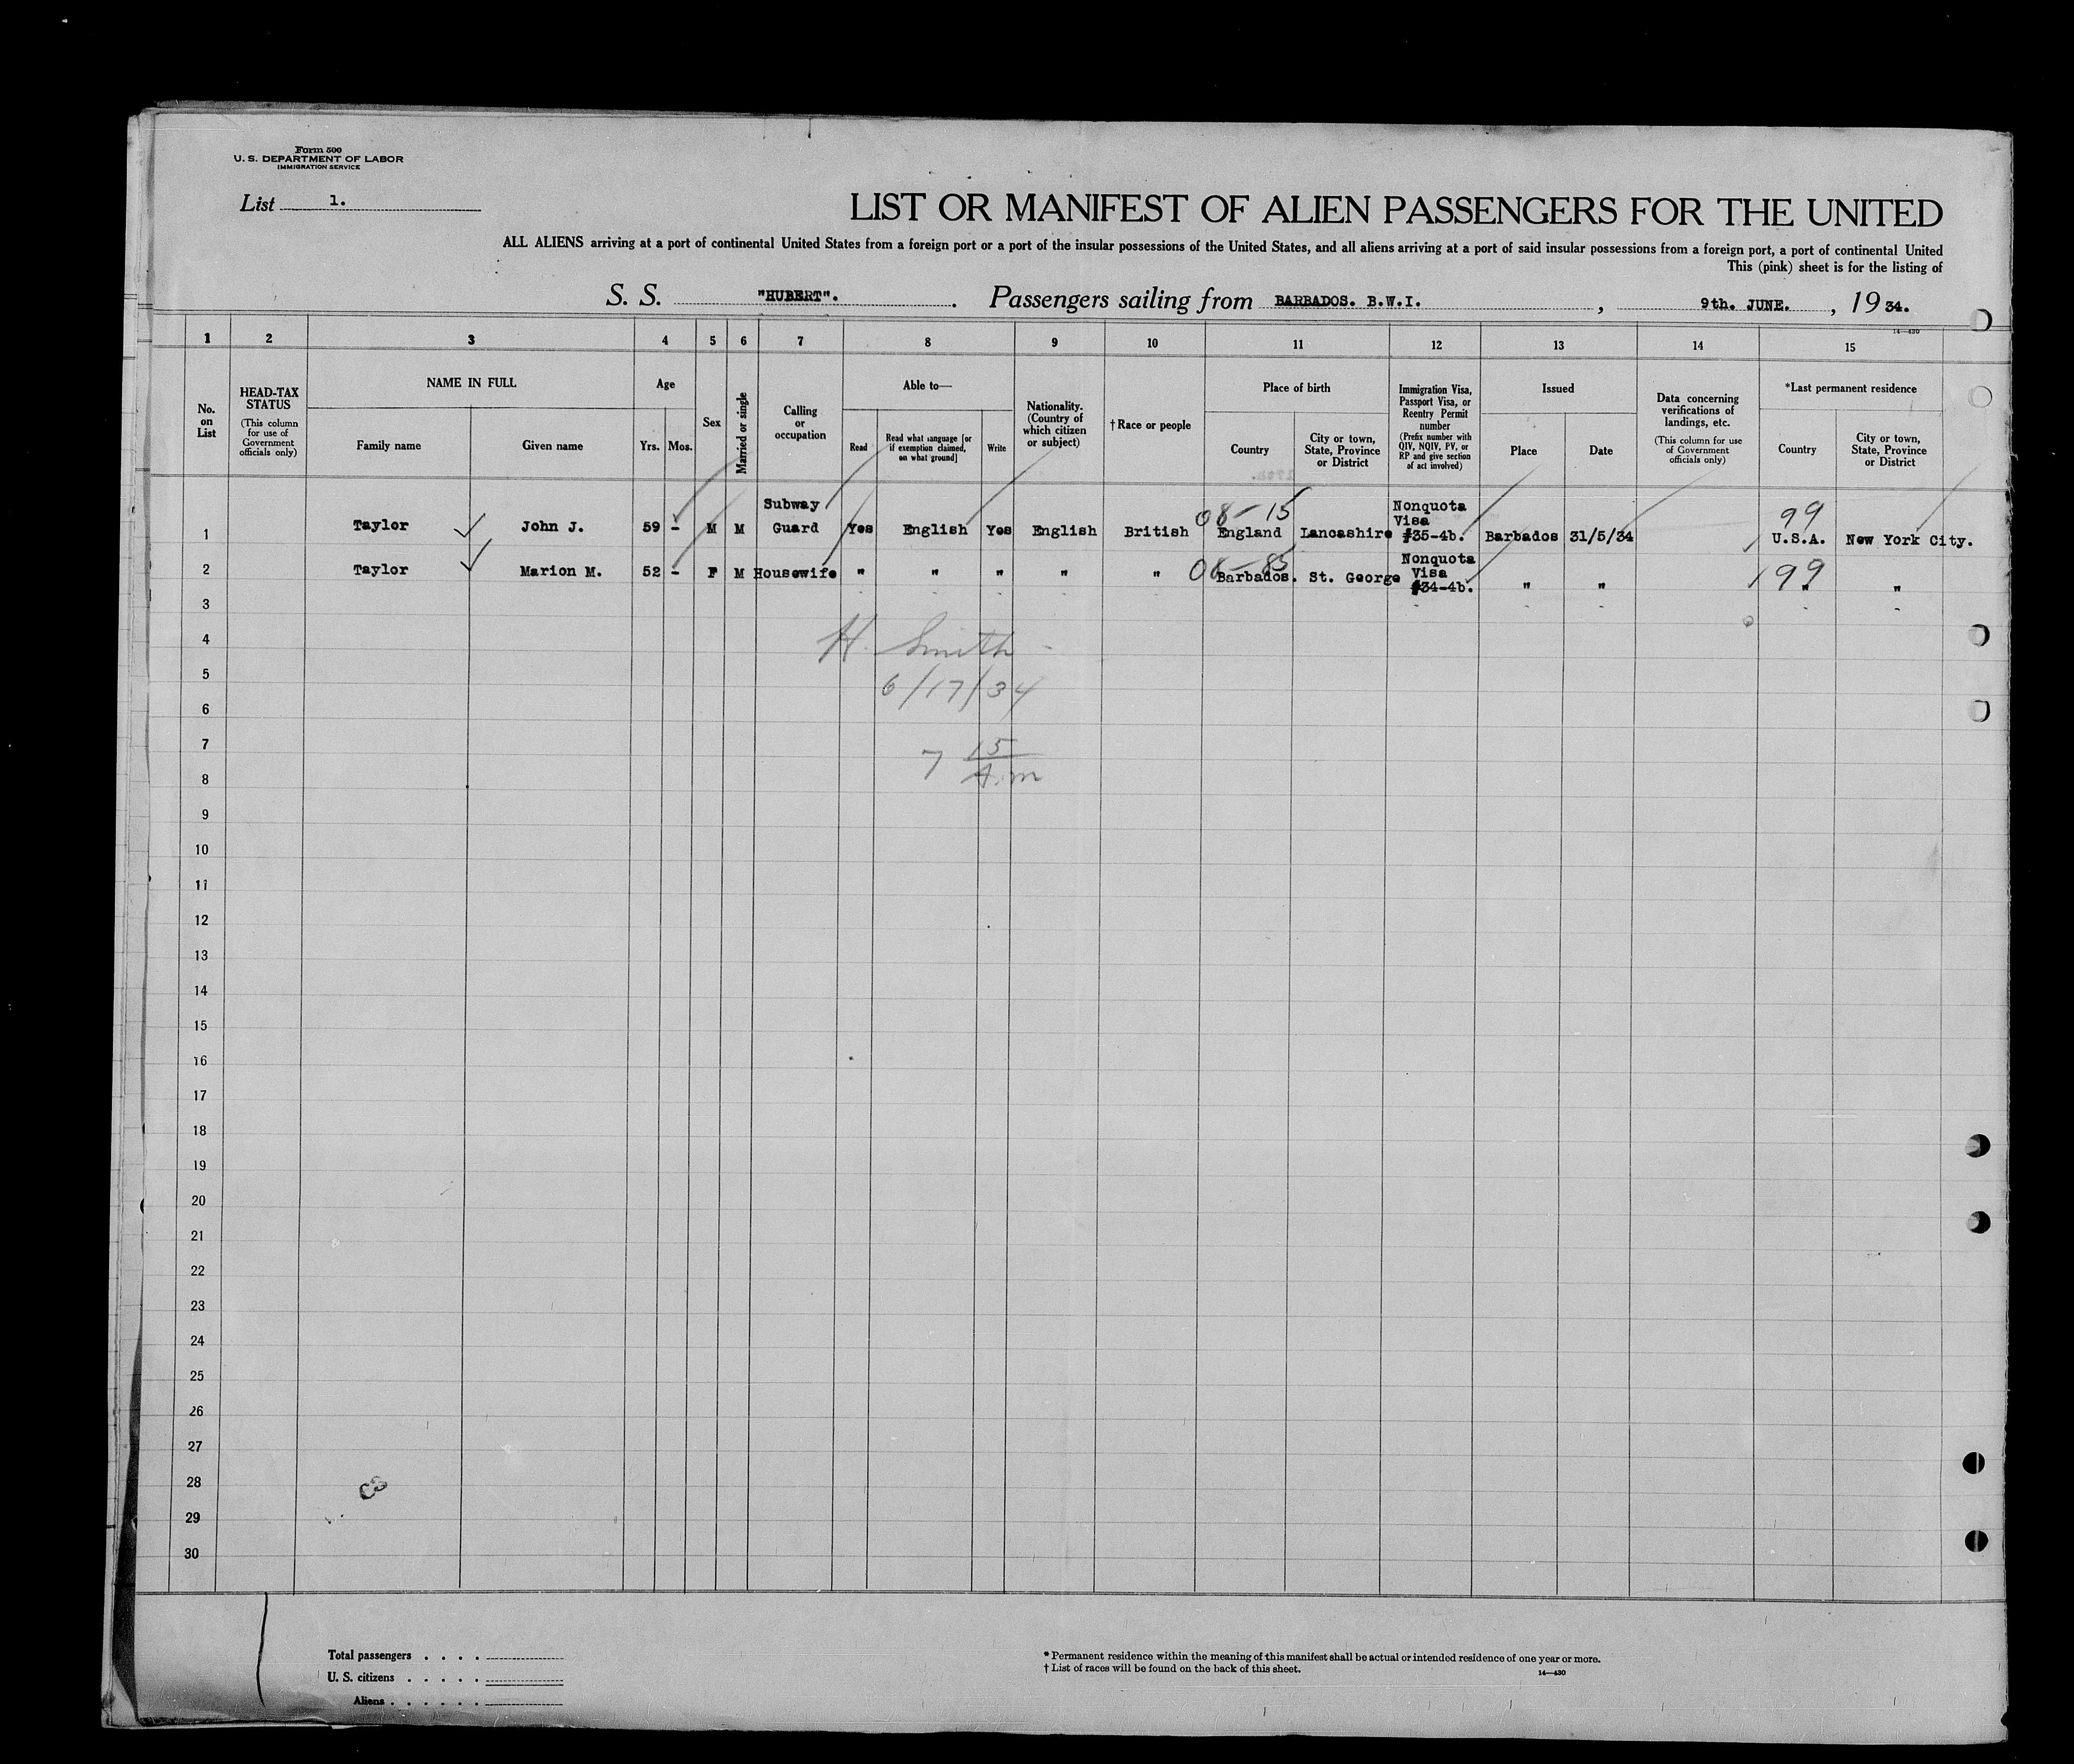 Form 500
U. S. DEPARTMENT OF LABOR
IMMIGRATION SERVICE
List 1.
LIST OR MANIFEST OF ALIEN PASSENGERS FOR THE UNITED
ALL ALIENS arriving at a port of continental United States from a foreign port or a port of the insular possessions of the United States, and all aliens arriving at a port of said insular possessions from a foreign port, a port of continental United
This (pink) sheet is for the listing of
S. S. "HUBERT". Passengers sailing from BARBADOS. B.W.I. , 9th. JUNE. , 19 34.
14—430
1 2 3 4 5 6 7 8 9 10 11 12 13 14 15
No. on List
HEAD-TAX STATUS
(This column for use of Government officials only)
NAME IN FULL
Family name
Given name
Age
Yrs. Mos.
Sex
Married or single
Calling or occupation
Able to—
Read
Read what language [or if exemption claimed, on what ground]
Write
Nationality. (Country of which citizen or subject)
†Race or people
Place of birth
Country
City or town, State, Province or District
Immigration Visa, Passport Visa, or Reentry Permit number
(Prefix number with QIV, NQIV, PV, or RP and give section of act involved)
Issued
Place
Date
Data concerning verifications of landings, etc.
(This column for use of Government officials only)
*Last permanent residence
Country
City or town, State, Province or District
1 Taylor John J. 59 - M M Subway Guard Yes English Yes English British 08-15 England Lancashire Nonquota Visa #35-4b. Barbados 31/5/34 99 U.S.A. New York City.
2 Taylor Marion M. 52 - F M Housewife " " " " " 08-85 Barbados. St. George Nonquota Visa #34-4b. " " 99 " "
3
4 H. Smith
5 6/17/34
6
7 7 15
8 A.m
9
10
11
12
13
14
15
16
17
18
19
20
21
22
23
24
25
26
27
28
29
30
Total passengers . . . .
U. S. citizens . . . . .
Aliens . . . . . .
* Permanent residence within the meaning of this manifest shall be actual or intended residence of one year or more.
† List of races will be found on the back of this sheet.
14—430